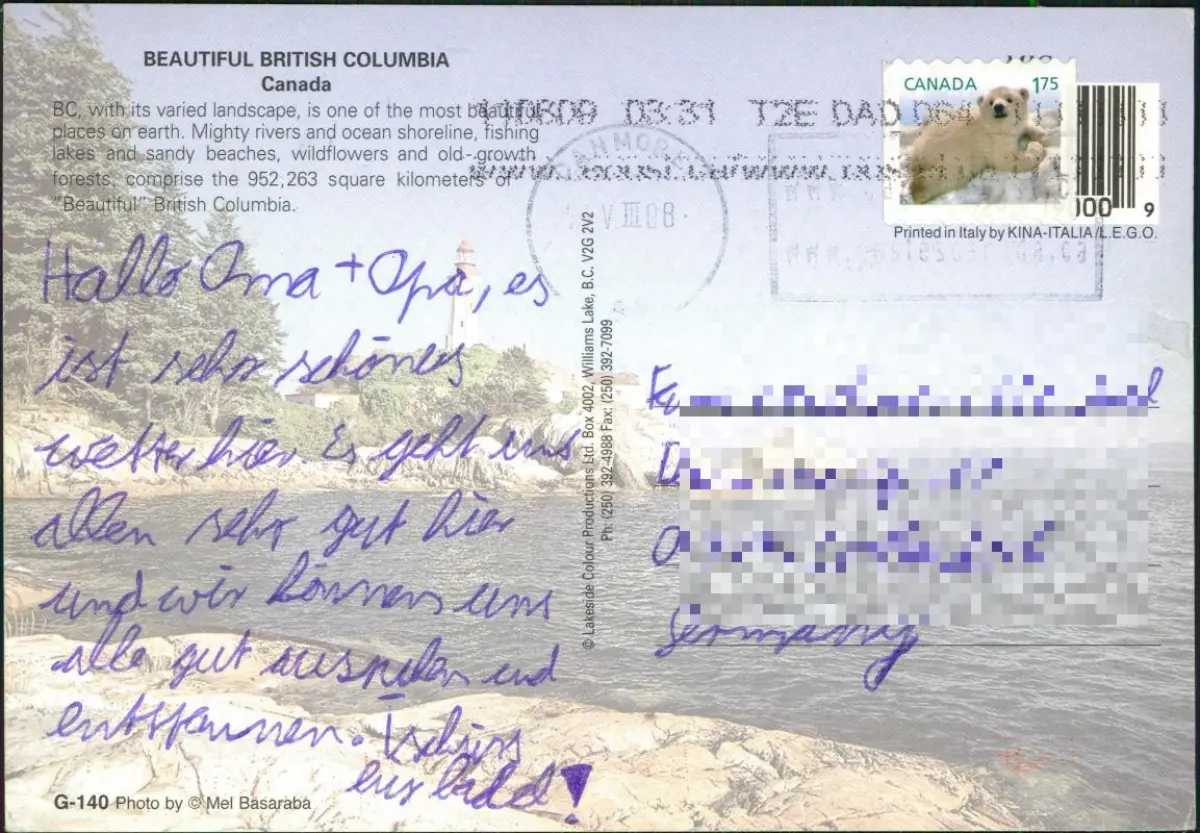 BEAUTIFUL BRITISH COLUMBIA
Canada
BC, with its varied landscape, is one of the most beautiful
places on earth. Mighty rivers and ocean shoreline, fishing
lakes and sandy beaches, wildflowers and old-growth
forests, comprise the 952,263 square kilometers of
"Beautiful" British Columbia.
Hallo Oma + Opa, es
ist sehr schönes
wetter hier. Es geht uns
allen sehr gut hier
und wir können uns
alle gut ausruhen und
entspannen. Tschüss
bald!
G-140 Photo by © Mel Basaraba
© Lakeside Colour Productions Ltd. Box 4002, Williams Lake, B.C. V2G 2V2
Ph: (250) 392-4988 Fax: (250) 392-7099
110809 03:31 T2E DAD D64
CANMORE
CANADA 175
00 9
Printed in Italy by KINA-ITALIA/L.E.G.O.
Germany